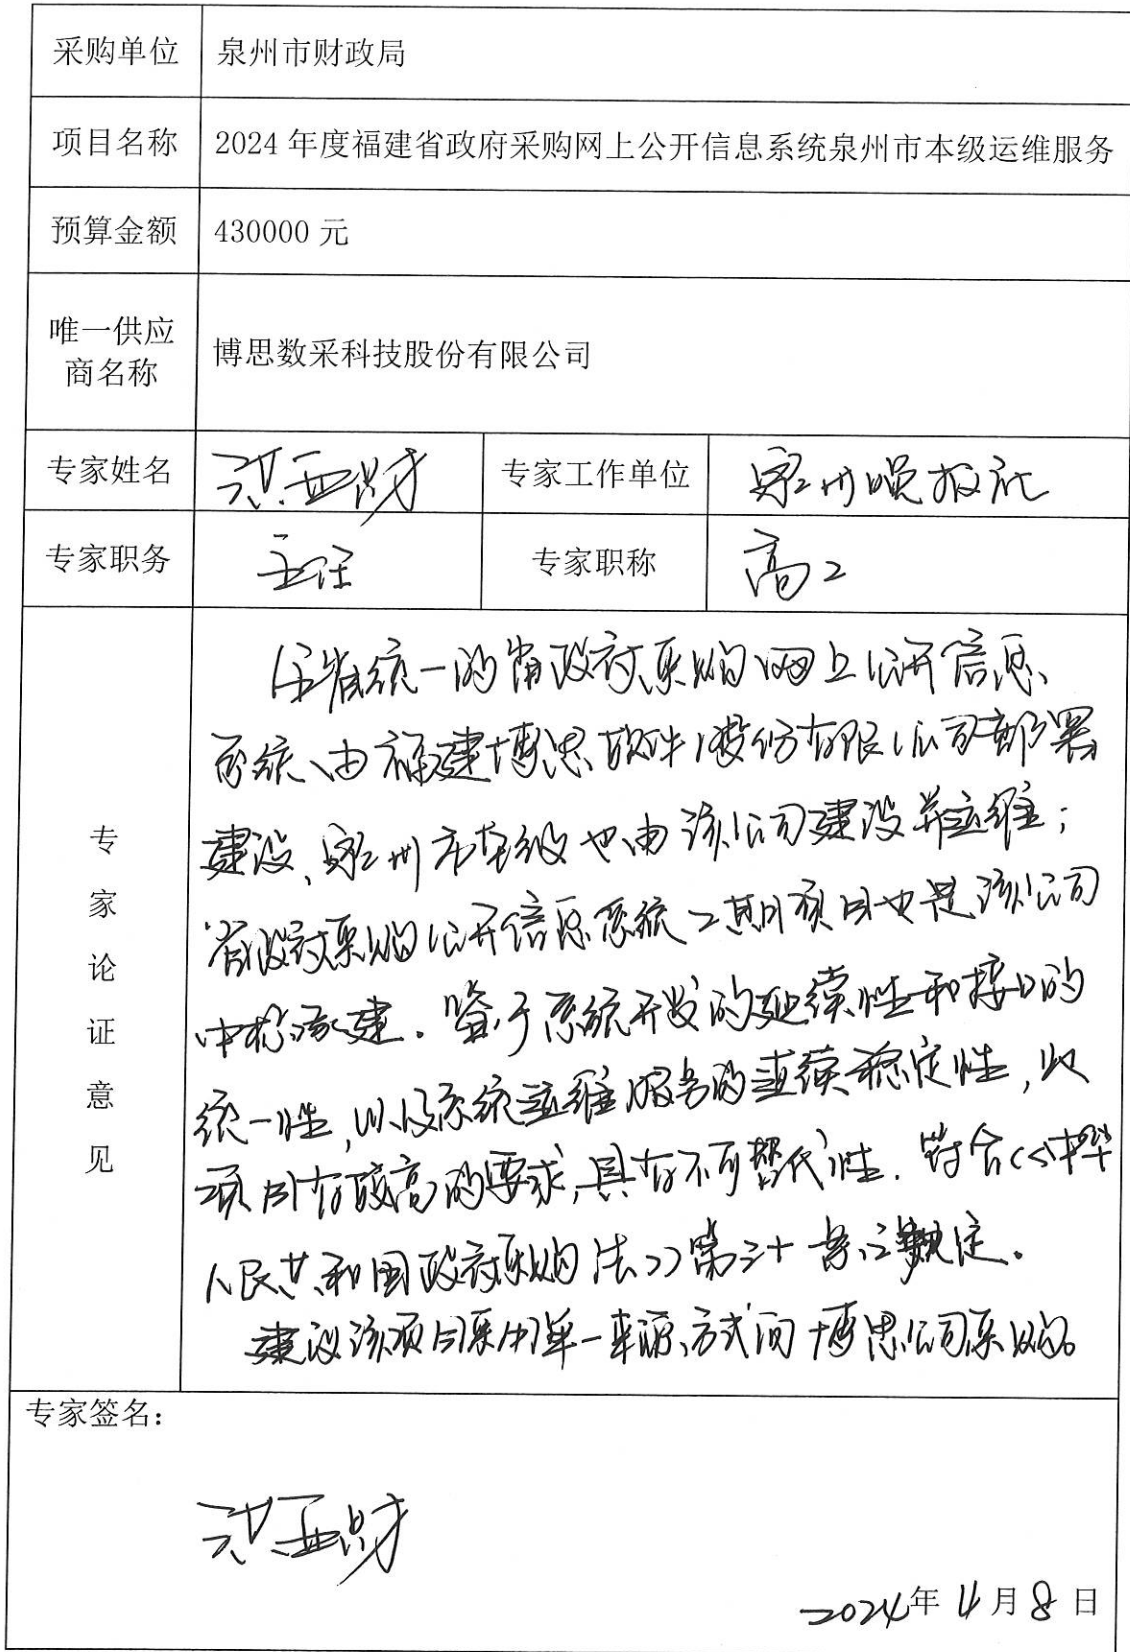 采购单位 泉州市财政局
项目名称 2024 年度福建省政府采购网上公开信息系统泉州市本级运维服务
预算金额 430000 元
唯一供应
商名称
博思数采科技股份有限公司
专家姓名 洪亚财 专家工作单位 泉州晚报社
专家职务 主任 专家职称 高工
专家论证意见
全省统一的省政府采购网上公开信息
系统、由福建博思软件股份有限公司部署
建设、泉州市本级也由该公司建设并运维；
省政府采购公开信息系统二期项目也是该公司
中标承建．鉴于系统开发的延续性和接口的
统一性，以及系统运维服务的连续稳定性，此
项目有较高的要求，具有不可替代性．符合《中华
人民共和国政府采购法》第三十一条之规定。
建议该项目采用单一来源方式向博思公司采购。
专家签名：
洪亚财
2024年4月8日